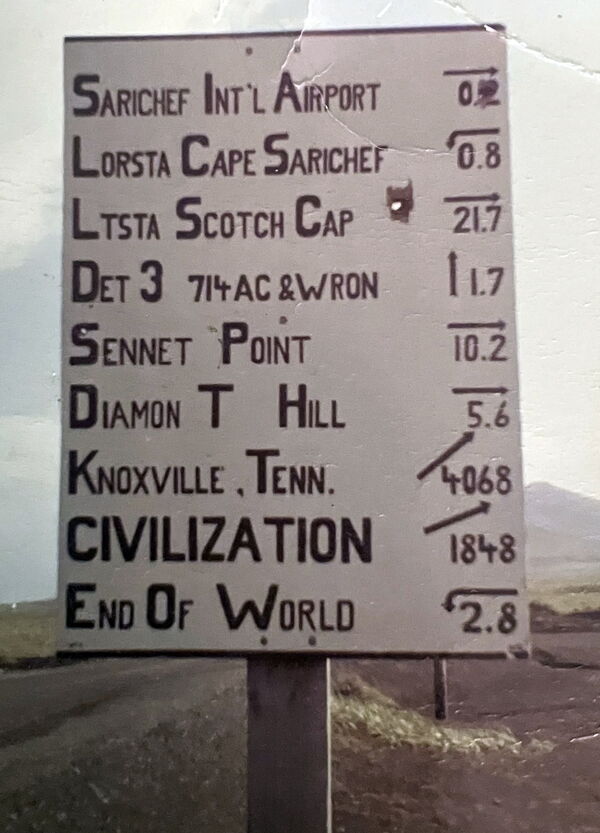 Sarichef Int'l Airport 0.2
Lorsta Cape Sarichef 0.8
Ltsta Scotch Cap 21.7
Det 3 714 AC & WRON 1.7
Sennet Point 10.2
Diamon T Hill 5.6
Knoxville, Tenn. 4068
CIVILIZATION 1848
End Of World 2.8